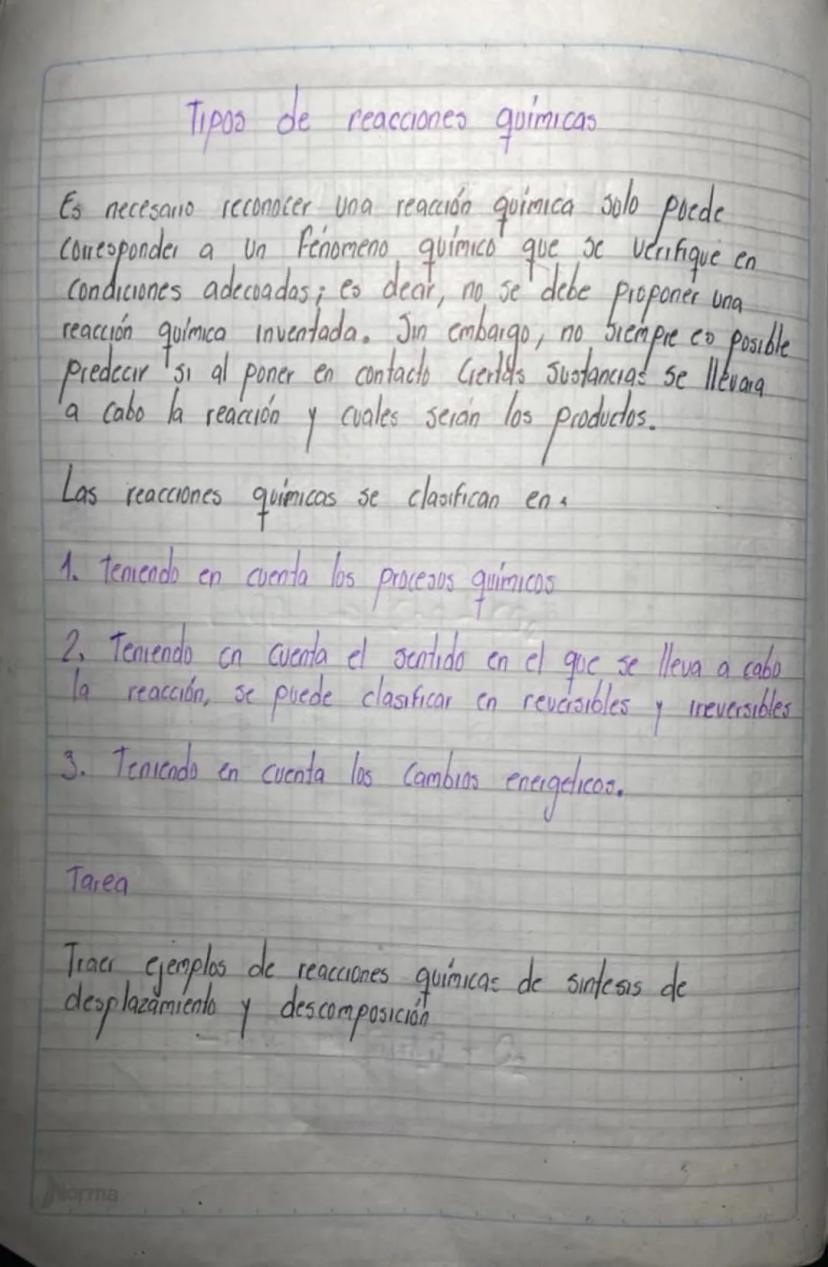 Tipos de reacciones químicas
Es necesario reconocer una reacción química solo puede
corresponder a un fenomeno químico que se verifique en
condiciones adecuadas; es decir, no se debe proponer una
reacción química inventada. Sin embargo, no siempre es posible
predecir si al poner en contacto ciertas sustancias se llevara
a cabo la reacción y cuales serán los productos.
Las reacciones químicas se clasifican en:
1. Teniendo en cuenta los procesos químicos
2. Teniendo en cuenta el sentido en el que se lleva a cabo
la reacción, se puede clasificar en reversibles y irreversibles
3. Teniendo en cuenta los cambios energeticos.
Tarea
Traer ejemplos de reacciones químicas de sintesis de
desplazamiento y descomposición
Norma